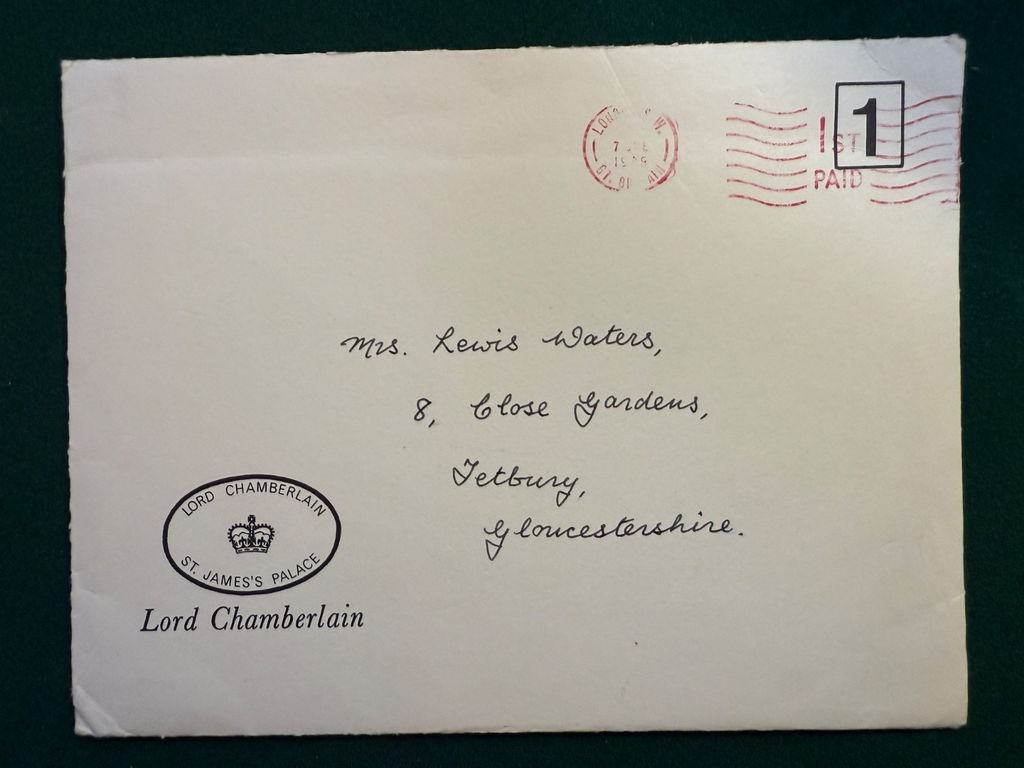 1
1ST
PAID
7
Mrs. Lewis Waters,
8, Close Gardens,
Tetbury,
Gloucestershire.
LORD CHAMBERLAIN
ST. JAMES'S PALACE
Lord Chamberlain